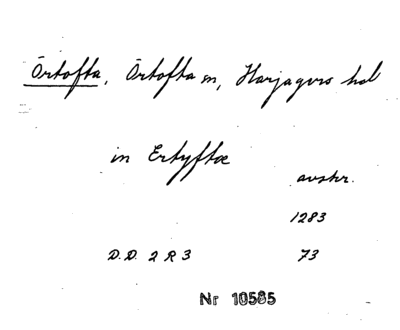 Örtofta, Örtofta sn, Harjagers hd
in Ertyftæ
avskr.
1283
D.D. 2 R 3 73
Nr 10585